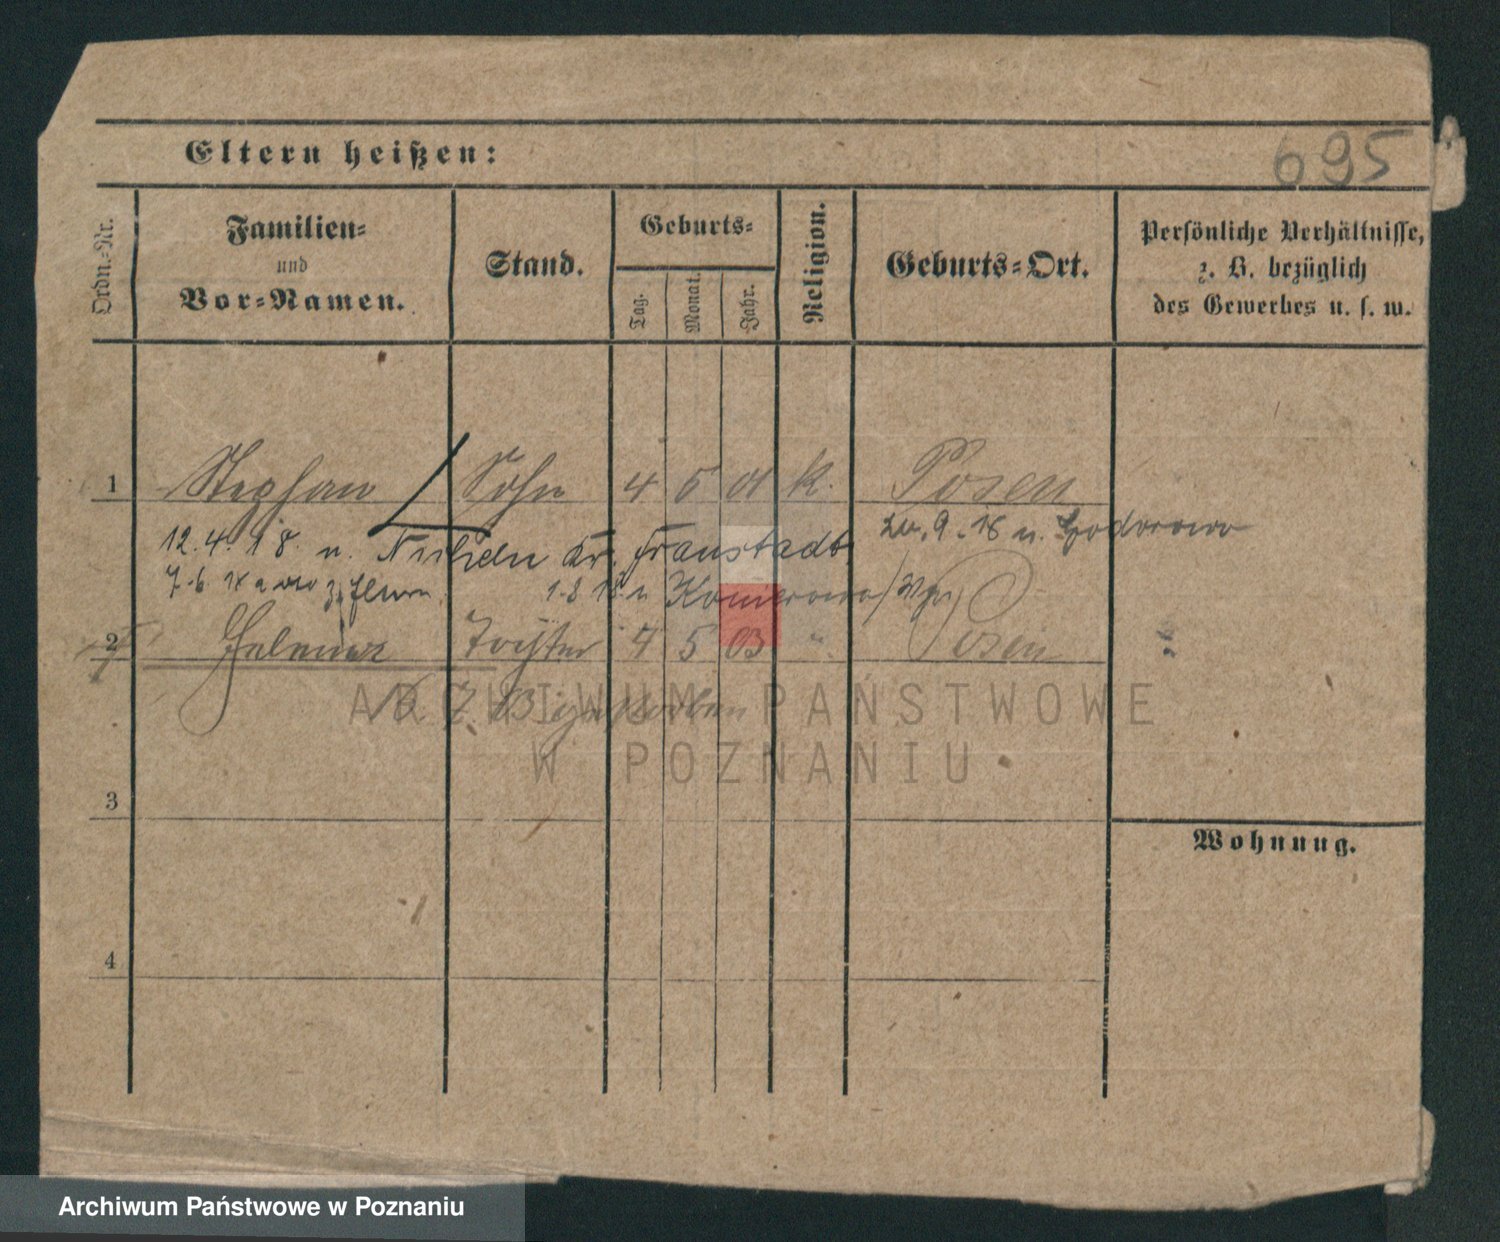 695
Eltern heißen:
Ordn.-Nr.
Familien-
und
Vor-Namen.
Stand.
Geburts-
Tag.
Monat.
Jahr.
Religion.
Geburts-Ort.
Persönliche Verhältnisse,
z. B. bezüglich
des Gewerbes u. s. w.
1 Stephan Sohn 4 5 01 k. Posen
12.4.18. n. Kr. Fraustadt
9.18 n.
7.6 18 1.8 18 n
2 Helena Tochter 4 5 03 " Posen
16.7.03 gestorben
ARCHIWUM PAŃSTWOWE
W POZNANIU
3
Wohnung.
4
Archiwum Państwowe w Poznaniu